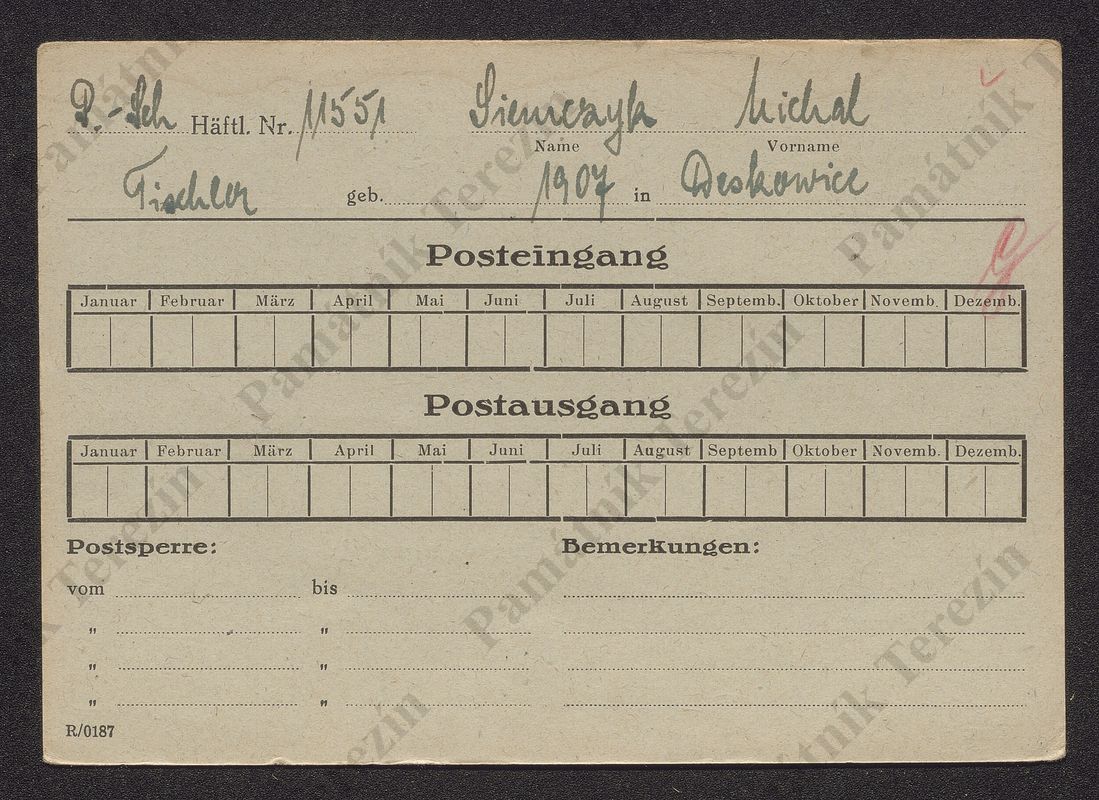 P.-Sch Häftl. Nr. 11551 Siemczyk Michal
Name Vorname
Tischler geb. 1907 in Deskowice
Posteingang
Januar Februar März April Mai Juni Juli August Septemb. Oktober Novemb. Dezemb.
Postausgang
Januar Februar März April Mai Juni Juli August Septemb Oktober Novemb. Dezemb.
Postsperre: Bemerkungen:
vom bis
" "
" "
" "
R/0187
Památník Terezín